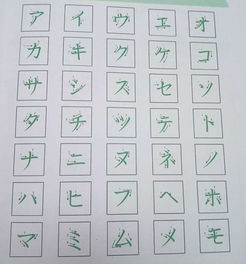 ア イ ウ エ オ
カ キ ク ケ コ
サ シ ス セ ソ
タ チ ツ テ ト
ナ ニ ヌ ネ ノ
ハ ヒ フ ヘ ホ
マ ミ ム メ モ